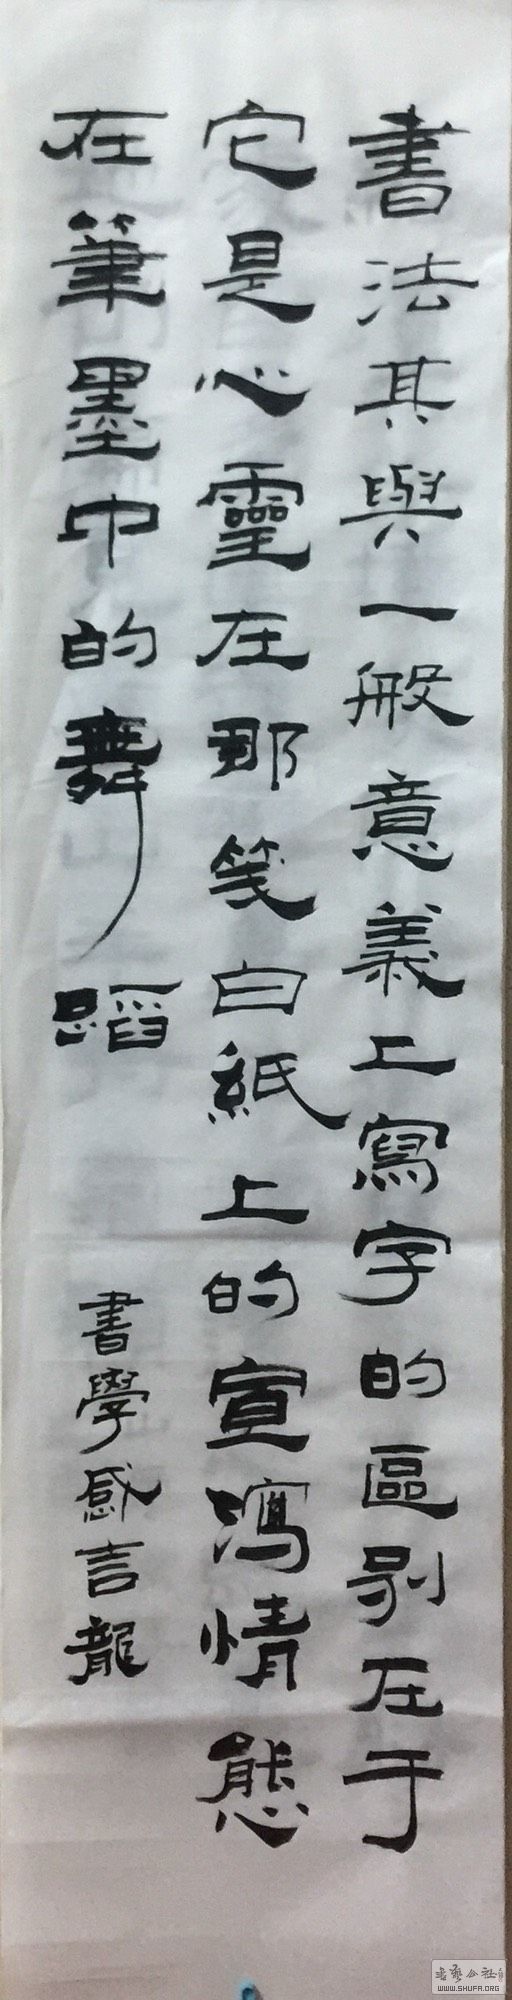 書法其與一般意義上寫字的區别在于
它是心靈在那笺白紙上的宣瀉情態
在筆墨中的舞蹈
書學感言龍
书艺公社
WWW.SHUFA.ORG